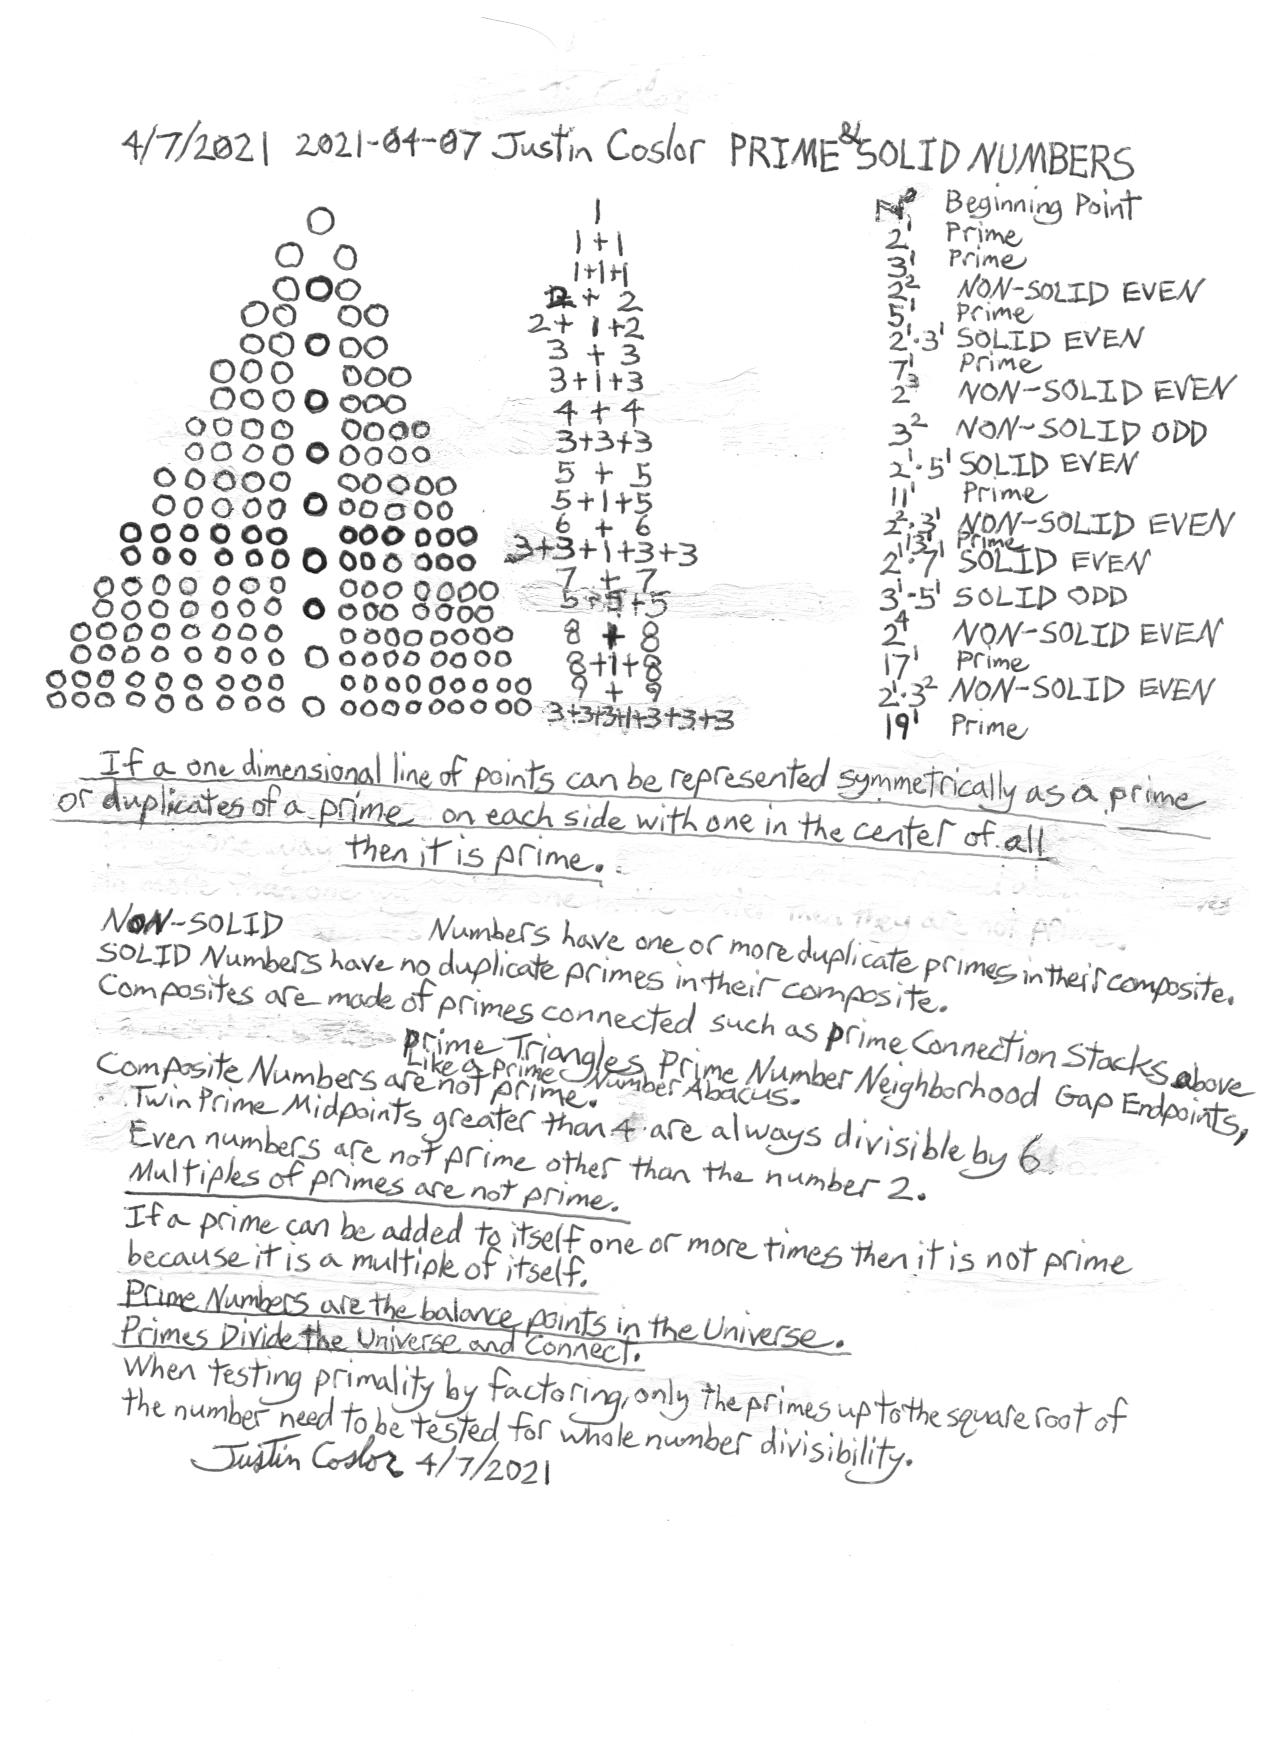 4/7/2021 2021-04-07 Justin Coslor PRIME & SOLID NUMBERS
1 N⁰ Beginning Point
1+1 2¹ Prime
1+1+1 3¹ Prime
2 + 2 2² NON-SOLID EVEN
2+1+2 5¹ Prime
3 + 3 2¹·3¹ SOLID EVEN
3+1+3 7¹ Prime
4 + 4 2³ NON-SOLID EVEN
3+3+3 3² NON-SOLID ODD
5 + 5 2¹·5¹ SOLID EVEN
5+1+5 11¹ Prime
6 + 6 2²·3¹ NON-SOLID EVEN
3+3+1+3+3 13¹ Prime
7 + 7 2¹·7¹ SOLID EVEN
5+5+5 3¹·5¹ SOLID ODD
8 + 8 2⁴ NON-SOLID EVEN
8+1+8 17¹ Prime
9 + 9 2¹·3² NON-SOLID EVEN
3+3+3+1+3+3+3 19¹ Prime
If a one dimensional line of points can be represented symmetrically as a prime
or duplicates of a prime on each side with one in the center of all
then it is prime.
NON-SOLID Numbers have one or more duplicate primes in their composite.
SOLID Numbers have no duplicate primes in their composite.
Composites are made of primes connected such as prime Connection Stacks above
Prime Triangles, Prime Number Neighborhood Gap Endpoints,
Like a Prime Number Abacus.
Composite Numbers are not prime.
Twin Prime Midpoints greater than 4 are always divisible by 6
Even numbers are not prime other than the number 2.
Multiples of primes are not prime.
If a prime can be added to itself one or more times then it is not prime
because it is a multiple of itself.
Prime Numbers are the balance points in the Universe.
Primes Divide the Universe and Connect.
When testing primality by factoring, only the primes up to the square root of
the number need to be tested for whole number divisibility.
Justin Coslor 4/7/2021